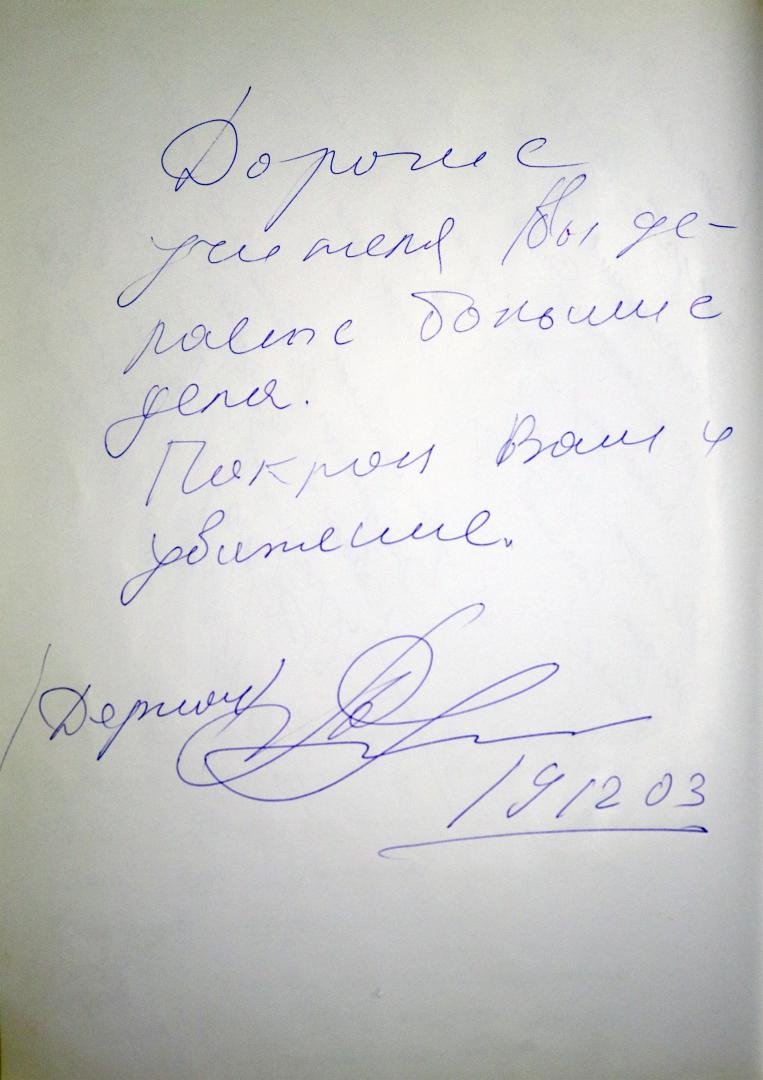 Дорогие
учителя Вы де-
лаете большие
дела.
Поклон Вам и
уважение.
19 12 03